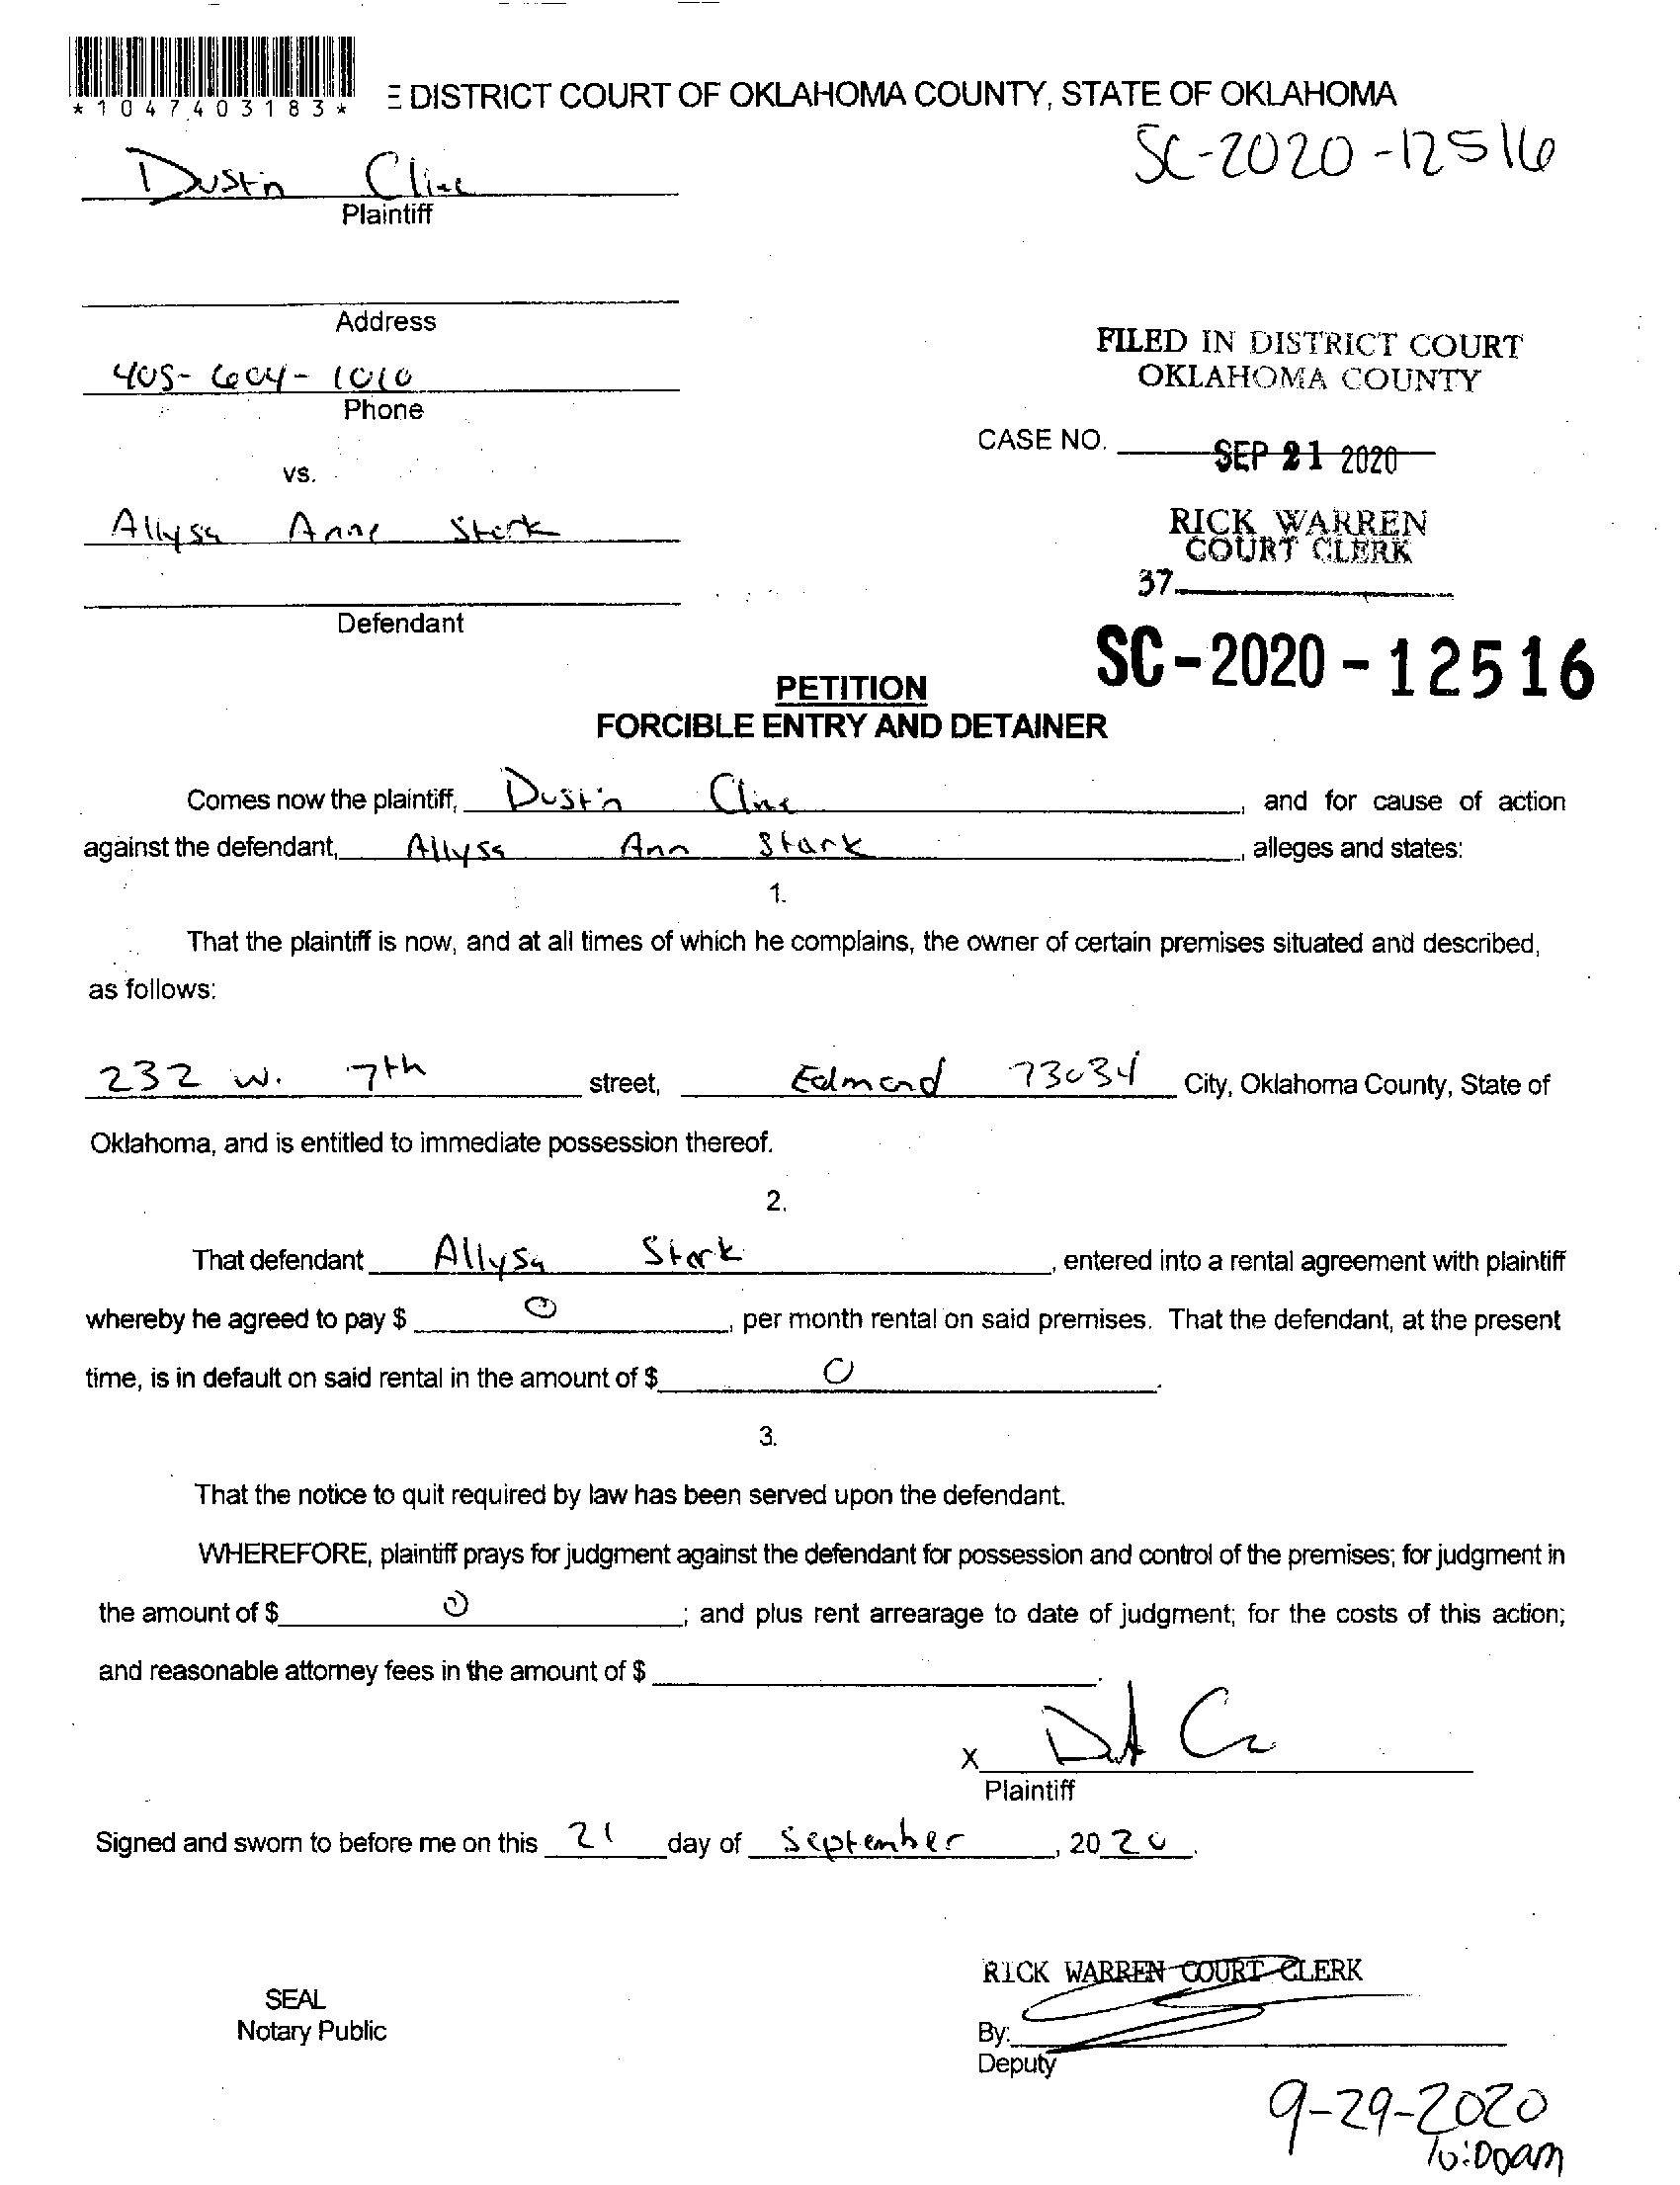 *1047403183*
E DISTRICT COURT OF OKLAHOMA COUNTY, STATE OF OKLAHOMA
SC-2020-12516
Dustin Cline
Plaintiff
Address
405-604-1010
Phone
FILED IN DISTRICT COURT
OKLAHOMA COUNTY
CASE NO. SEP 21 2020
vs.
Allysa Anne Stark
RICK WARREN
COURT CLERK
37
Defendant
SC-2020-12516
PETITION
FORCIBLE ENTRY AND DETAINER
Comes now the plaintiff, Dustin Cline, and for cause of action
against the defendant, Allysa Ann Stark, alleges and states:
1.
That the plaintiff is now, and at all times of which he complains, the owner of certain premises situated and described,
as follows:
232 W. 7th street, Edmond 73034 City, Oklahoma County, State of
Oklahoma, and is entitled to immediate possession thereof.
2.
That defendant Allysa Stark, entered into a rental agreement with plaintiff
whereby he agreed to pay $ 0, per month rental on said premises. That the defendant, at the present
time, is in default on said rental in the amount of $ 0.
3.
That the notice to quit required by law has been served upon the defendant.
WHEREFORE, plaintiff prays for judgment against the defendant for possession and control of the premises; for judgment in
the amount of $ 0; and plus rent arrearage to date of judgment; for the costs of this action;
and reasonable attorney fees in the amount of $ .
X
Plaintiff
Signed and sworn to before me on this 21 day of September, 2020.
RICK WARREN COURT CLERK
SEAL
Notary Public
By:
Deputy
9-29-2020
10:00am